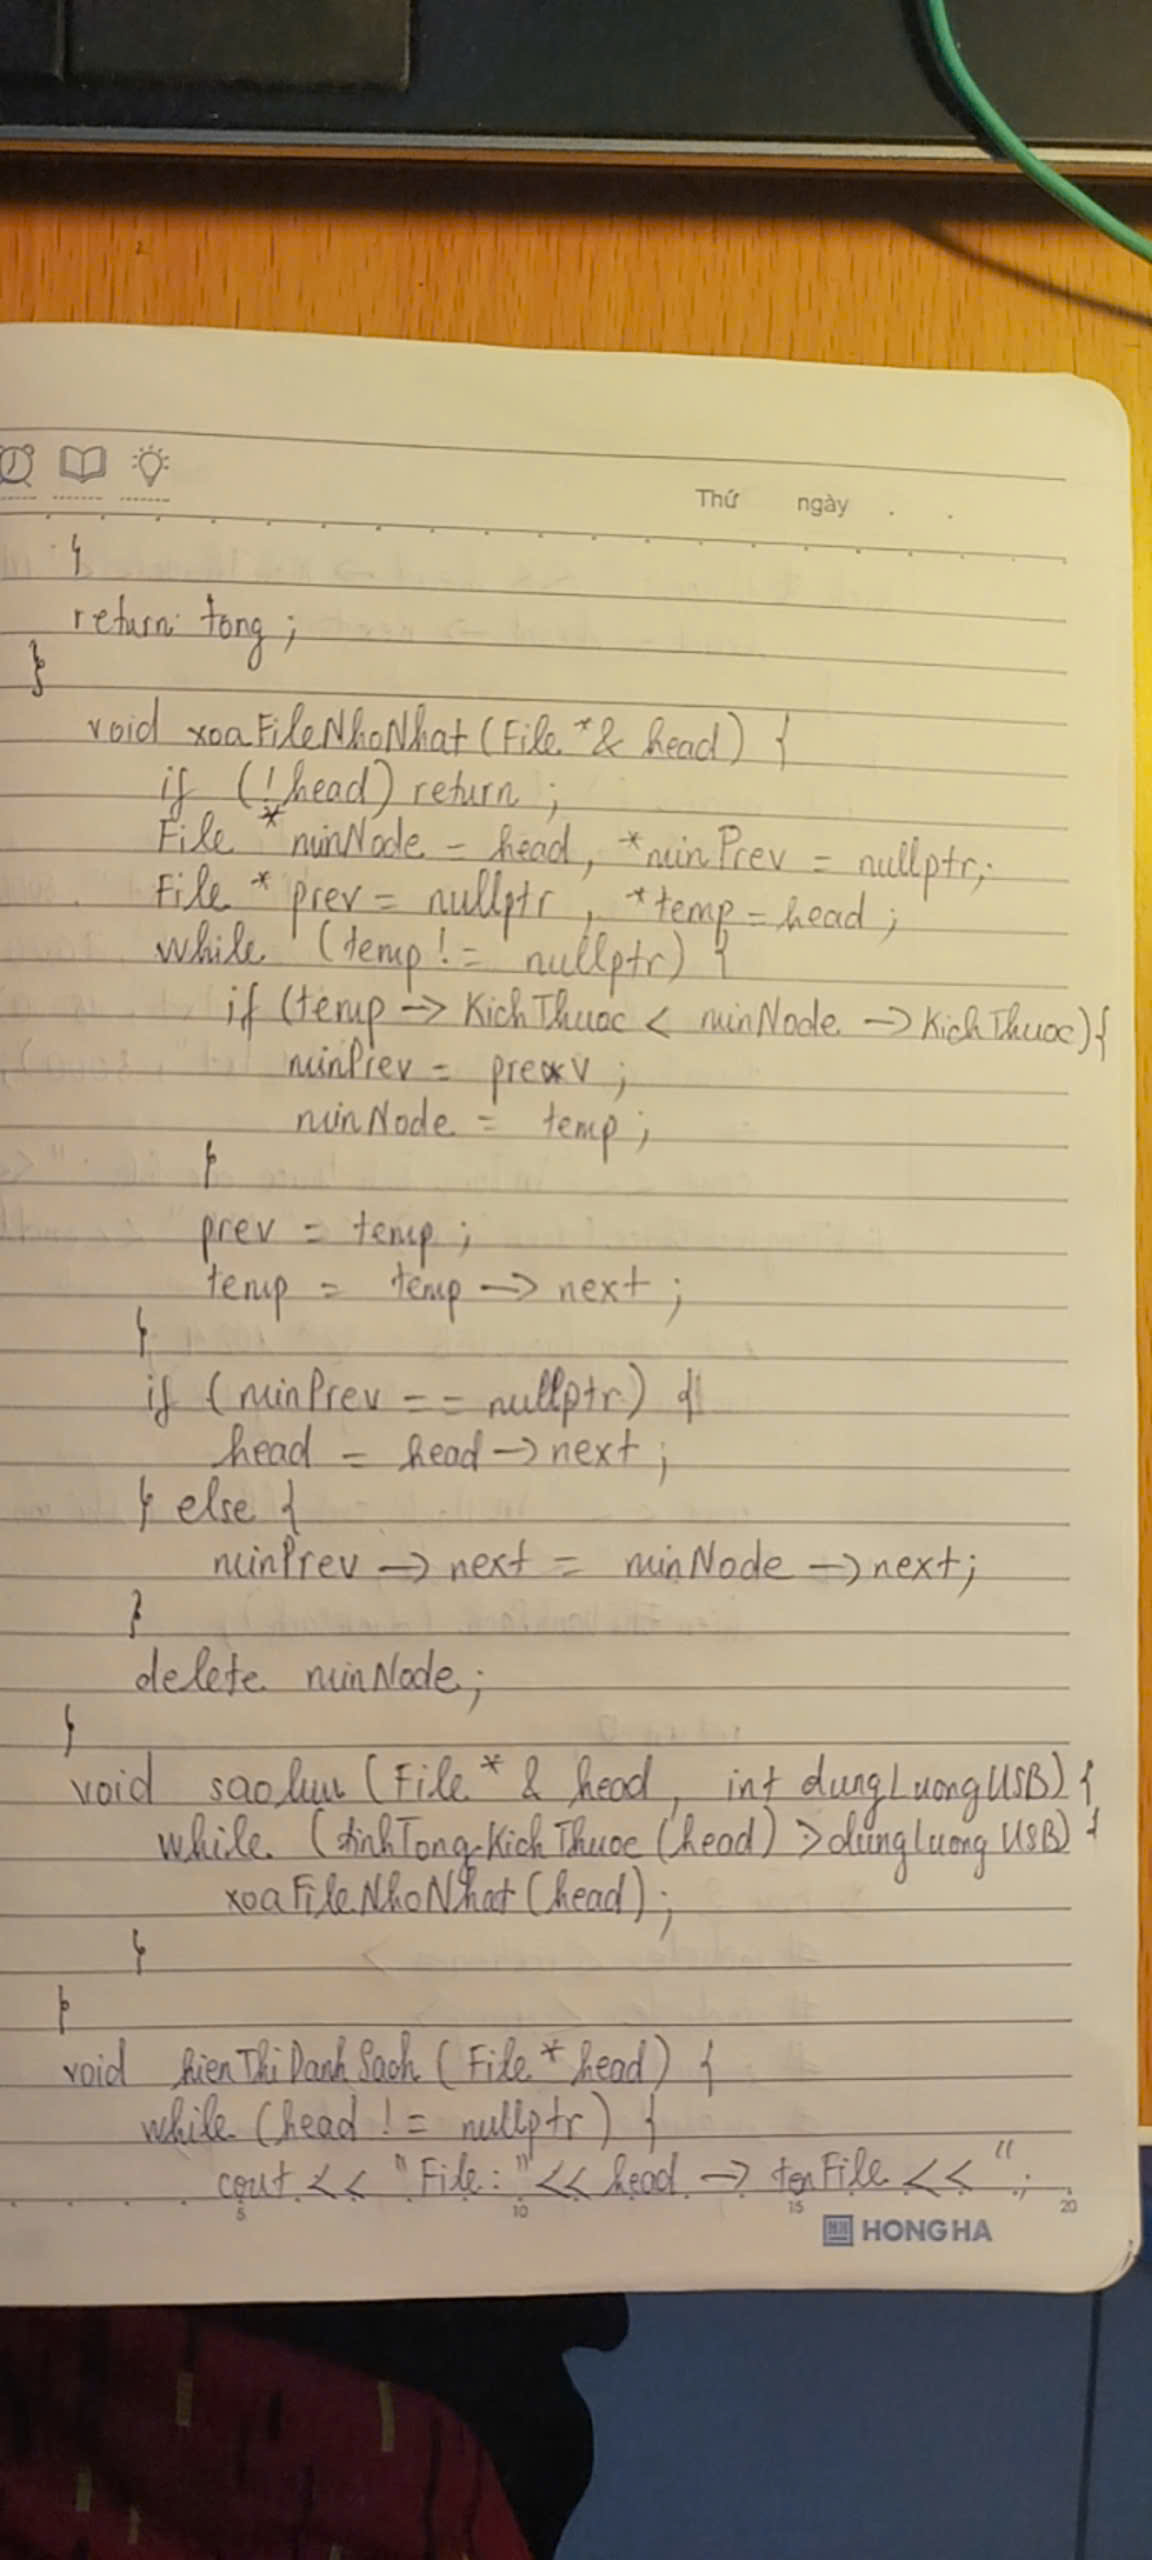 Thứ ngày . .
}
return tong;
}
void xoaFileNhoNhat(File *& head) {
if (!head) return;
File * minNode = head, *minPrev = nullptr;
File * prev = nullptr, *temp = head;
while (temp != nullptr) {
if (temp -> KichThuoc < minNode -> KichThuoc) {
minPrev = prev;
minNode = temp;
}
prev = temp;
temp = temp -> next;
}
if (minPrev == nullptr) {
head = head -> next;
} else {
minPrev -> next = minNode -> next;
}
delete minNode;
}
void saoluu (File * & head, int dungLuongUSB) {
while (tinhTongKichThuoc (head) > dungLuongUSB) {
xoaFileNhoNhat (head);
}
}
void hienThiDanhSach (File * head) {
while (head != nullptr) {
cout << "File: " << head -> tenFile << ";
5 10 15 20
HONG HA